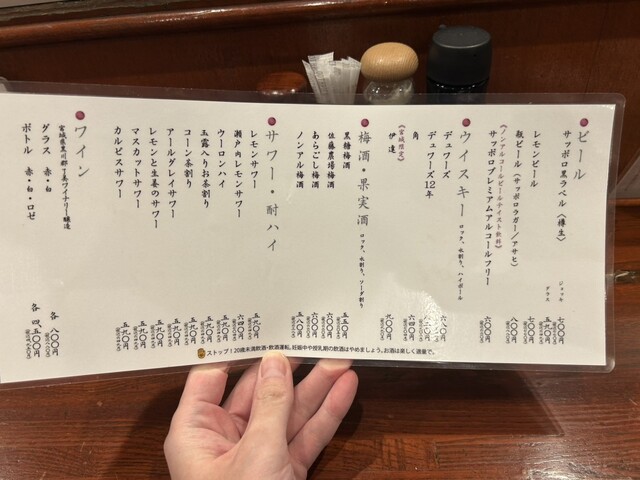 ビール
サッポロ黒ラベル〈樽生〉
ジョッキ 七〇〇円
グラス 五九〇円
レモンビール 七〇〇円
瓶ビール〈サッポロラガー／アサヒ〉 八〇〇円
《ノンアルコールビールテイスト飲料》
サッポロプレミアムアルコールフリー 六〇〇円
ウイスキー ロック、水割り、ハイボール
デュワーズ
デュワーズ12年
角 六四〇円
《宮城限定》
伊達 九〇〇円
梅酒・果実酒 ロック、水割り、ソーダ割り
黒糖梅酒 五五〇円
佐藤農場梅酒 六〇〇円
あらごし梅酒 六〇〇円
ノンアル梅酒 五八〇円
サワー・酎ハイ
レモンサワー 五九〇円
瀬戸内レモンサワー 六四〇円
ウーロンハイ 五九〇円
玉露入りお茶割り 五九〇円
コーン茶割り 五九〇円
アールグレイサワー 五九〇円
レモンと生姜のサワー 五九〇円
マスカットサワー 五九〇円
カルピスサワー 五九〇円
ワイン
宮城県黒川郡 了美ワイナリー醸造
グラス 赤・白 各 八〇〇円
ボトル 赤・白・ロゼ 各 四、五〇〇円
ストップ！20歳未満飲酒・飲酒運転。妊娠中や授乳期の飲酒はやめましょう。お酒は楽しく適量で。